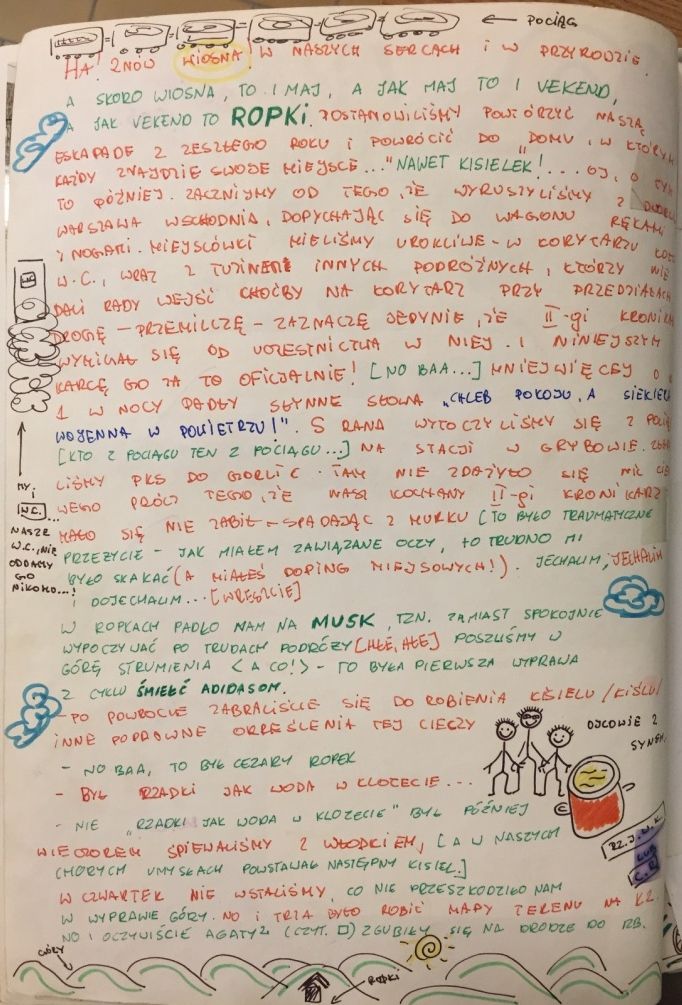 ← POCIĄG
HA! ZNÓW WIOSNA W NASZYCH SERCACH I W PRZYRODZIE.
A SKORO WIOSNA, TO I MAJ, A JAK MAJ TO I VEKEND,
A JAK VEKEND TO ROPKI. POSTANOWILIŚMY POWTÓRZYĆ NASZĄ
ESKAPADE Z ZESZŁEGO ROKU I POWRÓCIĆ DO "DOMU, W KTÓRYM
KAŻDY ZNAJDZIE SWOJE MIEJSCE..." NAWET KISIELEK!... OJ, O TYM
TO PÓŹNIEJ. ZACZNIJMY OD TEGO, ŻE WYRUSZYLIŚMY Z DWORCA
WARSZAWA WSCHODNIA, DOPYCHAJĄC SIĘ DO WAGONU RĘKAMI
I NOGAMI. MIEJSCÓWKI MIELIŚMY UROKLIWE - W KORYTARZU KOŁO
W.C., WRAZ Z TUZINEM INNYCH PODRÓŻNYCH, KTÓRZY NIE
DALI RADY WEJŚĆ CHOĆBY NA KORYTARZ PRZY PRZEDZIAŁACH
DROGĘ - PRZEMILCZĘ - ZAZNACZĘ JEDYNIE, ŻE II-gi KRONIKARZ
WYMIGAŁ SIĘ OD UCZESTNICTWA W NIEJ. I NINIEJSZYM
KARCĘ GO ZA TO OFICJALNIE! [NO BAA...] MNIEJ WIĘCEJ O
1 W NOCY PADŁY SŁYNNE SŁOWA „CHLEB POKOJU, A SIEKIERA
WOJENNA W POWIETRZU!". S RANA WYTOCZYLIŚMY SIĘ Z POCIĄGU
[KTO Z POCIĄGU TEN Z POCIĄGU...] NA STACJI W GRYBOWIE.
LIŚMY PKS DO GORLIC. TAM NIE ZDAŻYŁO SIĘ NIC CIEKA
WEGO PRÓCZ TEGO, ŻE NASZ KOCHANY II-gi KRONIKARZ
MAŁO SIĘ NIE ZABIŁ - SPADAJĄC Z MURKU [TO BYŁO TRAUMATYCZNE
PRZEŻYCIE - JAK MIAŁEM ZAWIĄZANE OCZY, TO TRUDNO MI
BYŁO SKAKAĆ (A MIAŁEŚ DOPING MIEJSCOWYCH!). JECHALIM, JECHALIM
I DOJECHALIM... [WRESZCIE]
MY i
W.C....
NASZE
W.C., NIE
ODDAMY
GO
NIKOMU...!
W ROPKACH PADŁO NAM NA MUSK, TZN. ZAMIAST SPOKOJNIE
WYPOCZYWAĆ PO TRUDACH PODRÓŻY [HŁE, HŁE] POSZLIŚMY W
GÓRĘ STRUMIENIA <A CO!> - TO BYŁA PIERWSZA WYPRAWA
Z CYKLU ŚMIERĆ ADIDASOM.
- PO POWROCIE ZABRALIŚCIE SIĘ DO ROBIENIA KIŚIELU /KIŚLU/
INNE POPRAWNE OKREŚLENIA TEJ CIECZY
- NO BAA, TO BYŁ CEZARY ROPEK
- BYŁ RZADKI JAK WODA W KLOZECIE...
- NIE „RZADKI JAK WODA W KLOZECIE" BYŁ PÓŹNIEJ
OJCOWIE Z
SYNEM
WIECZOREM ŚPIEWALIŚMY Z WŁODKIEM, [A W NASZYCH
CHORYCH UMYSŁACH POWSTAWAŁ NASTĘPNY KISIEL.]
RZ. J. W. K.
LUB
C. R.
W CZWARTEK NIE WSTALIŚMY, CO NIE PRZESZKODZIŁO NAM
W WYPRAWIE GÓRY. NO I TRZA BYŁO ROBIĆ MAPY TERENU NA RZ.
NO I OCZYWIŚCIE AGATY2 (CZYT. □) ZGUBIŁY SIĘ NA DRODZE DO RB.
GÓRY
ROPKI